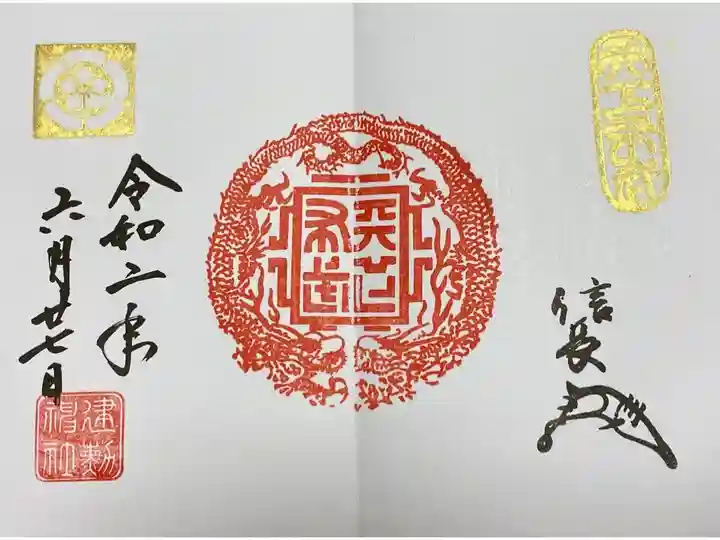 信長
天下布武
令和二年
六月廿七日
建勲神社